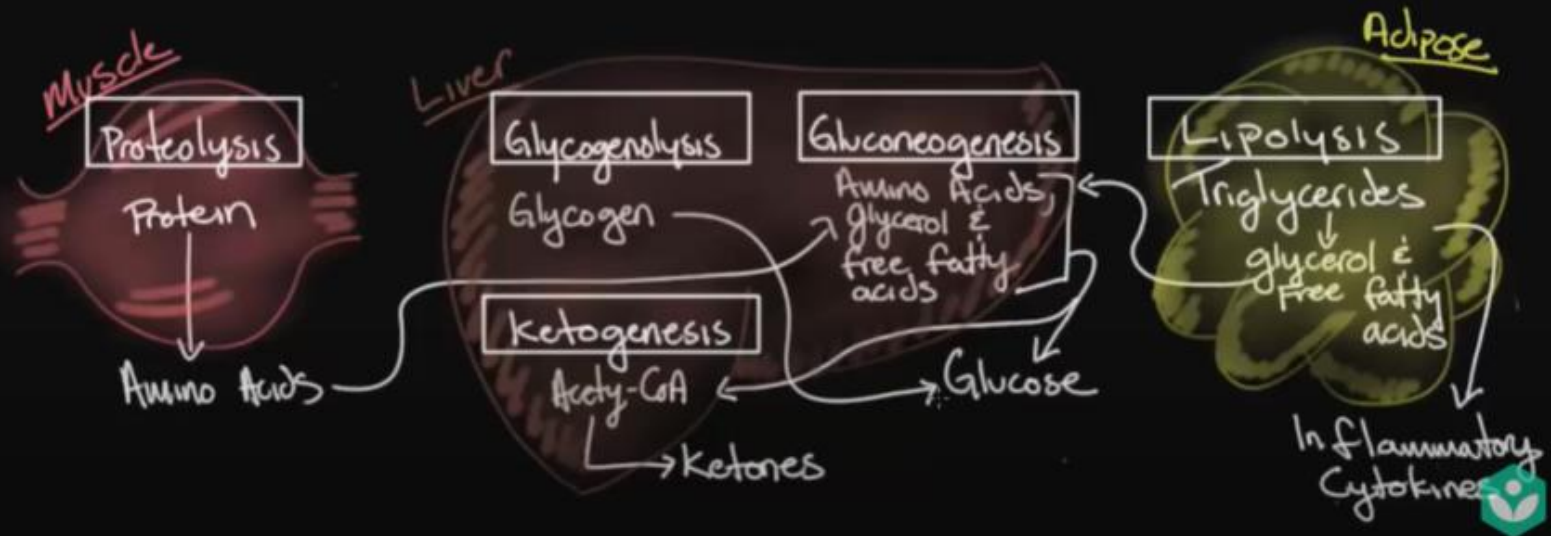 Muscle
Proteolysis
Protein
Amino Acids
Liver
Glycogenolysis
Glycogen
Ketogenesis
Acety-CoA
Ketones
Gluconeogenesis
Amino Acids,
glycerol &
free fatty
acids
Glucose
Adipose
Lipolysis
Triglycerides
glycerol &
Free fatty
acids
Inflammatory
Cytokines